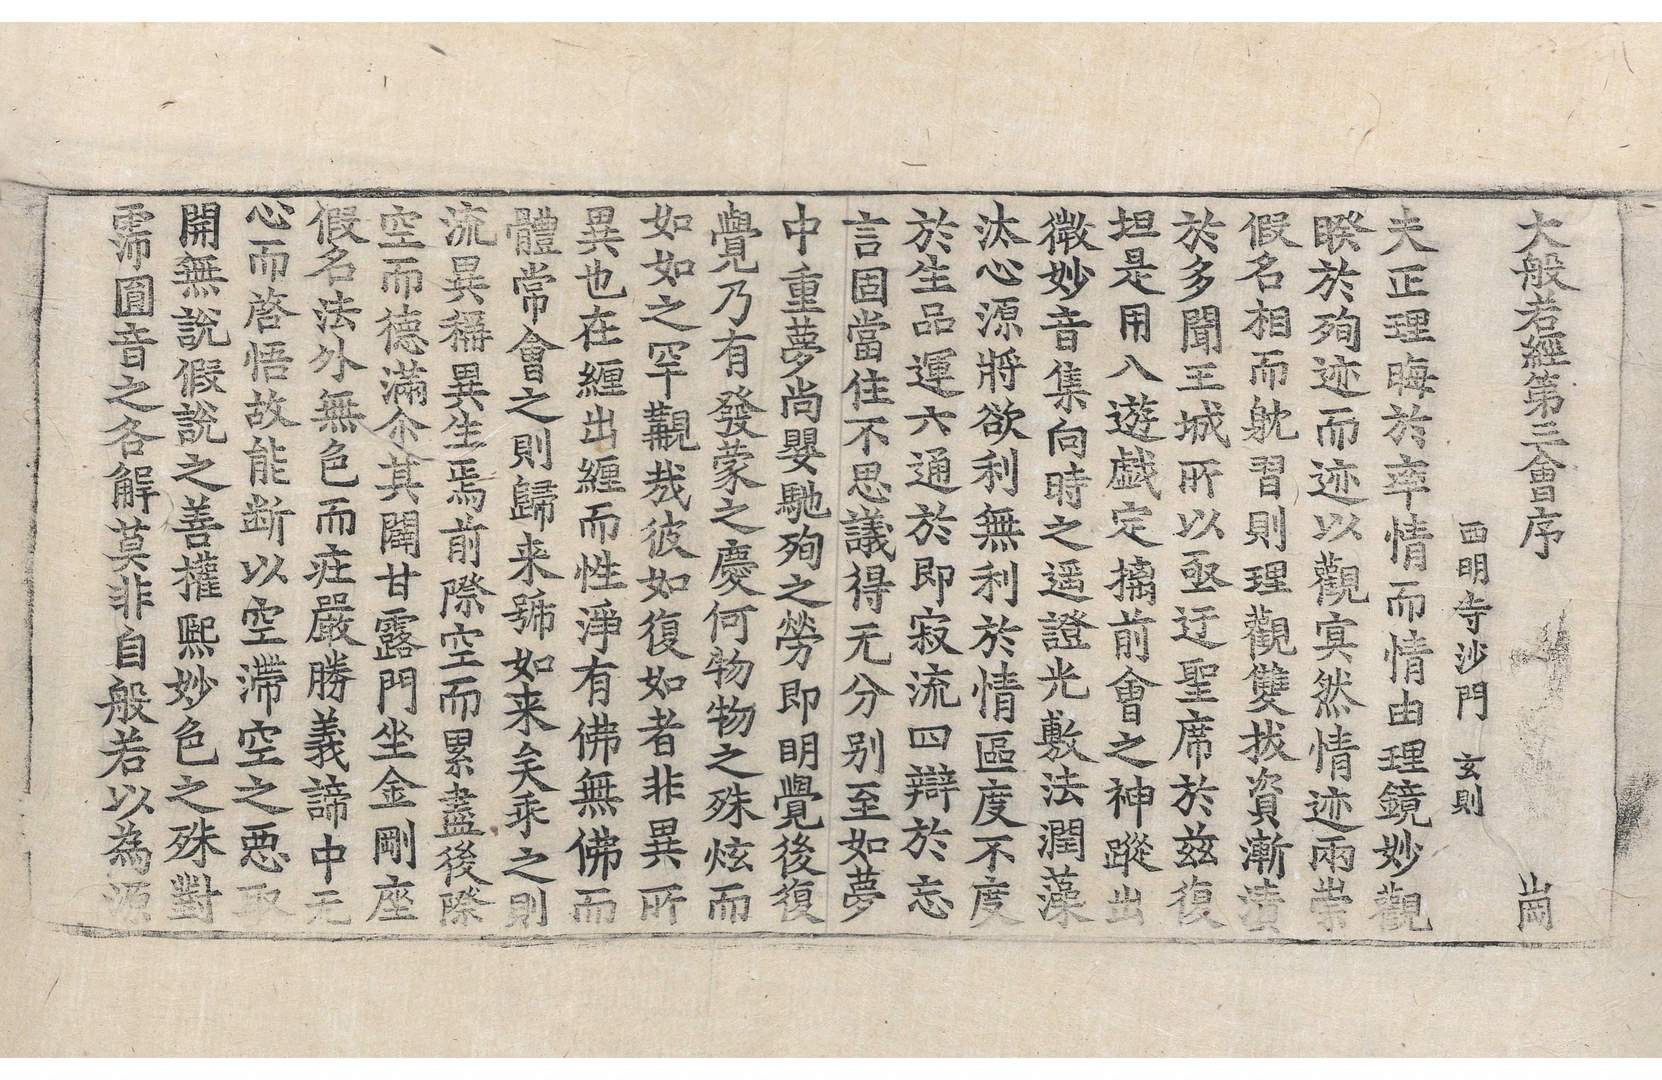 大般若經第三會序 崗
西明寺沙門 玄則
夫正理晦於率情而情由理鏡妙觀
睽於殉迹而迹以觀㝠然情迹兩崇
假名相而躭習則理觀雙拔資漸漬
於多聞王城所以亟迂聖席於玆復
坦是用入遊戱定摛前會之神蹤出
微妙音集向時之遥證光敷法潤藻
汰心源將欲利無利於情區度不度
於生品運六通於即寂流四辯於忘
言固當住不思議得无分别至如夢
中重夢尚嬰馳殉之勞即眀覺後復
覺乃有發蒙之慶何物物之殊炫而
如如之罕覿哉彼如復如者非異所
異也在纏出纏而性淨有佛無佛而
體常會之則歸来號如来矣乖之則
流異稱異生焉前際空而累盡後際
空而德滿尒其闡甘露門坐金剛座
假名法外無色而莊嚴勝義諦中无
心而啓悟故能断以空滯空之惡取
開無說假說之善權熙妙色之殊對
霈圓音之各解莫非自般若以為源